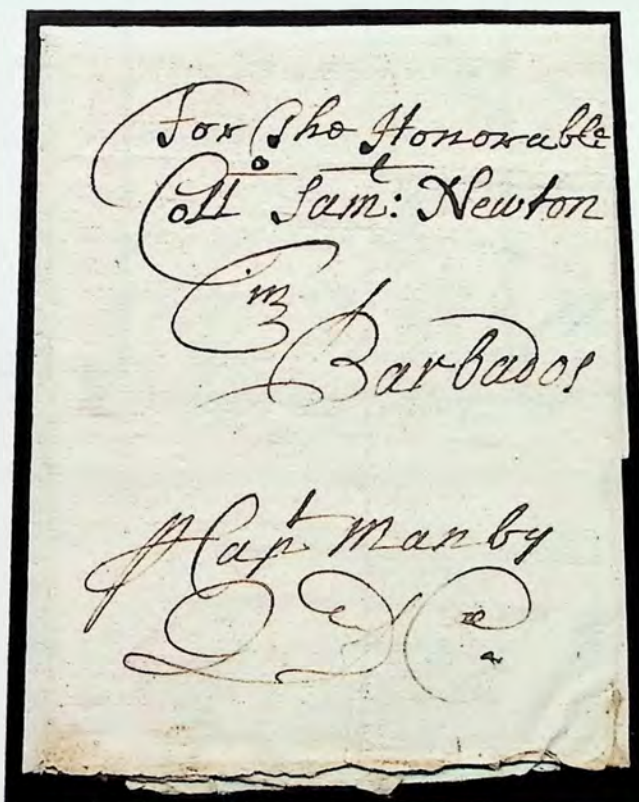 For The Honorable
Coll° Sam:ˡ Newton
in
Barbados
Capᵗ Manby
QDC